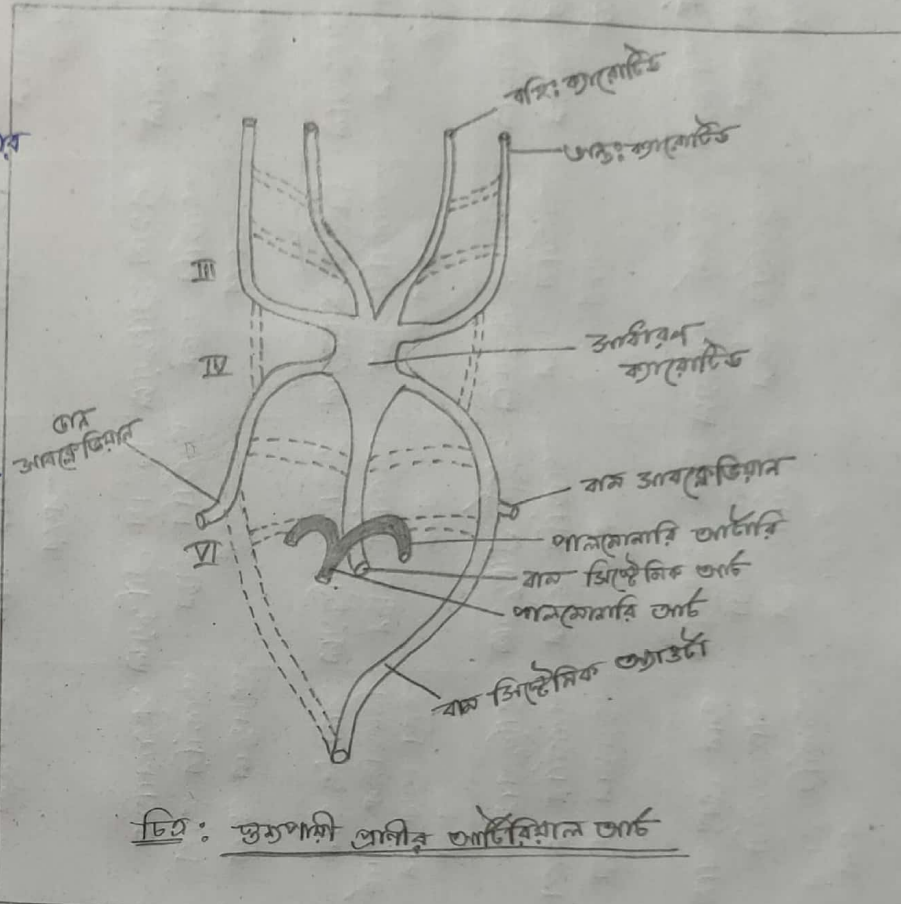 বহিঃ ক্যারোটিড
অন্তঃ ক্যারোটিড
III
সাধারণ
ক্যারোটিড
IV
ডান
সাবক্লেভিয়ান
বাম সাবক্লেভিয়ান
পালমোনারি আর্টারি
VI
বাম সিস্টেমিক আর্চ
পালমোনারি আর্চ
বাম সিস্টেমিক অ্যাওর্টা
চিত্র: স্তন্যপায়ী প্রাণীর আর্টেরিয়াল আর্চ